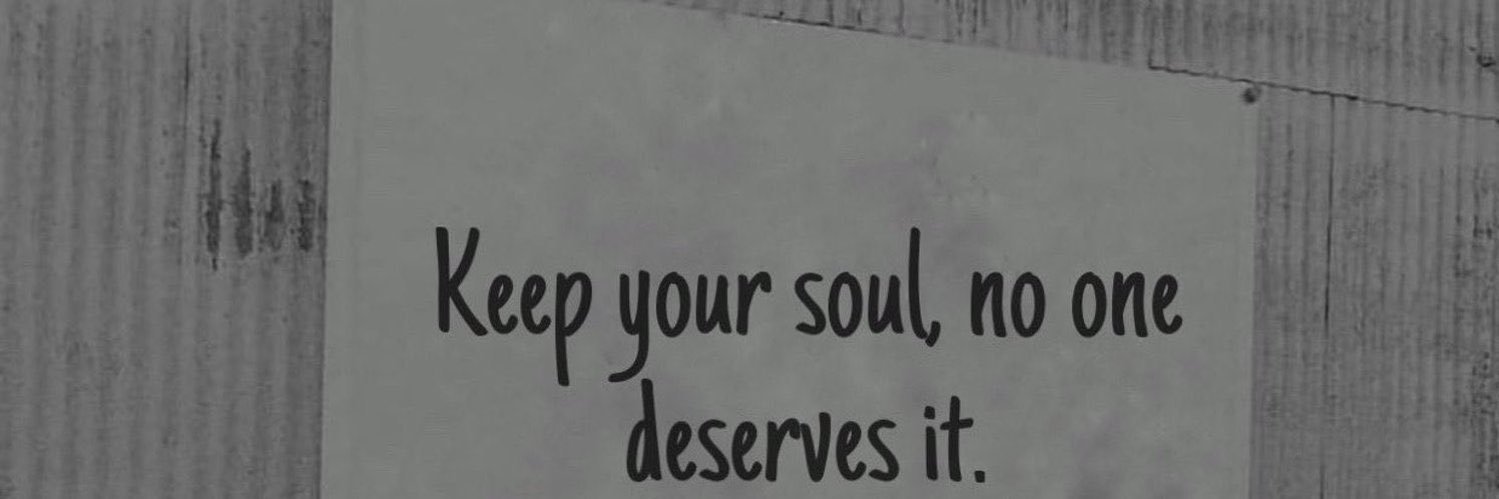 Keep your soul, no one
deserves it.